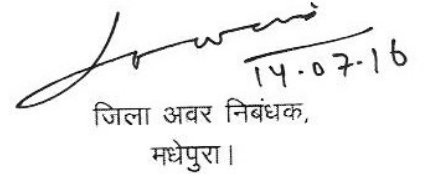 14.07.16
जिला अवर निबंधक,
मधेपुरा।